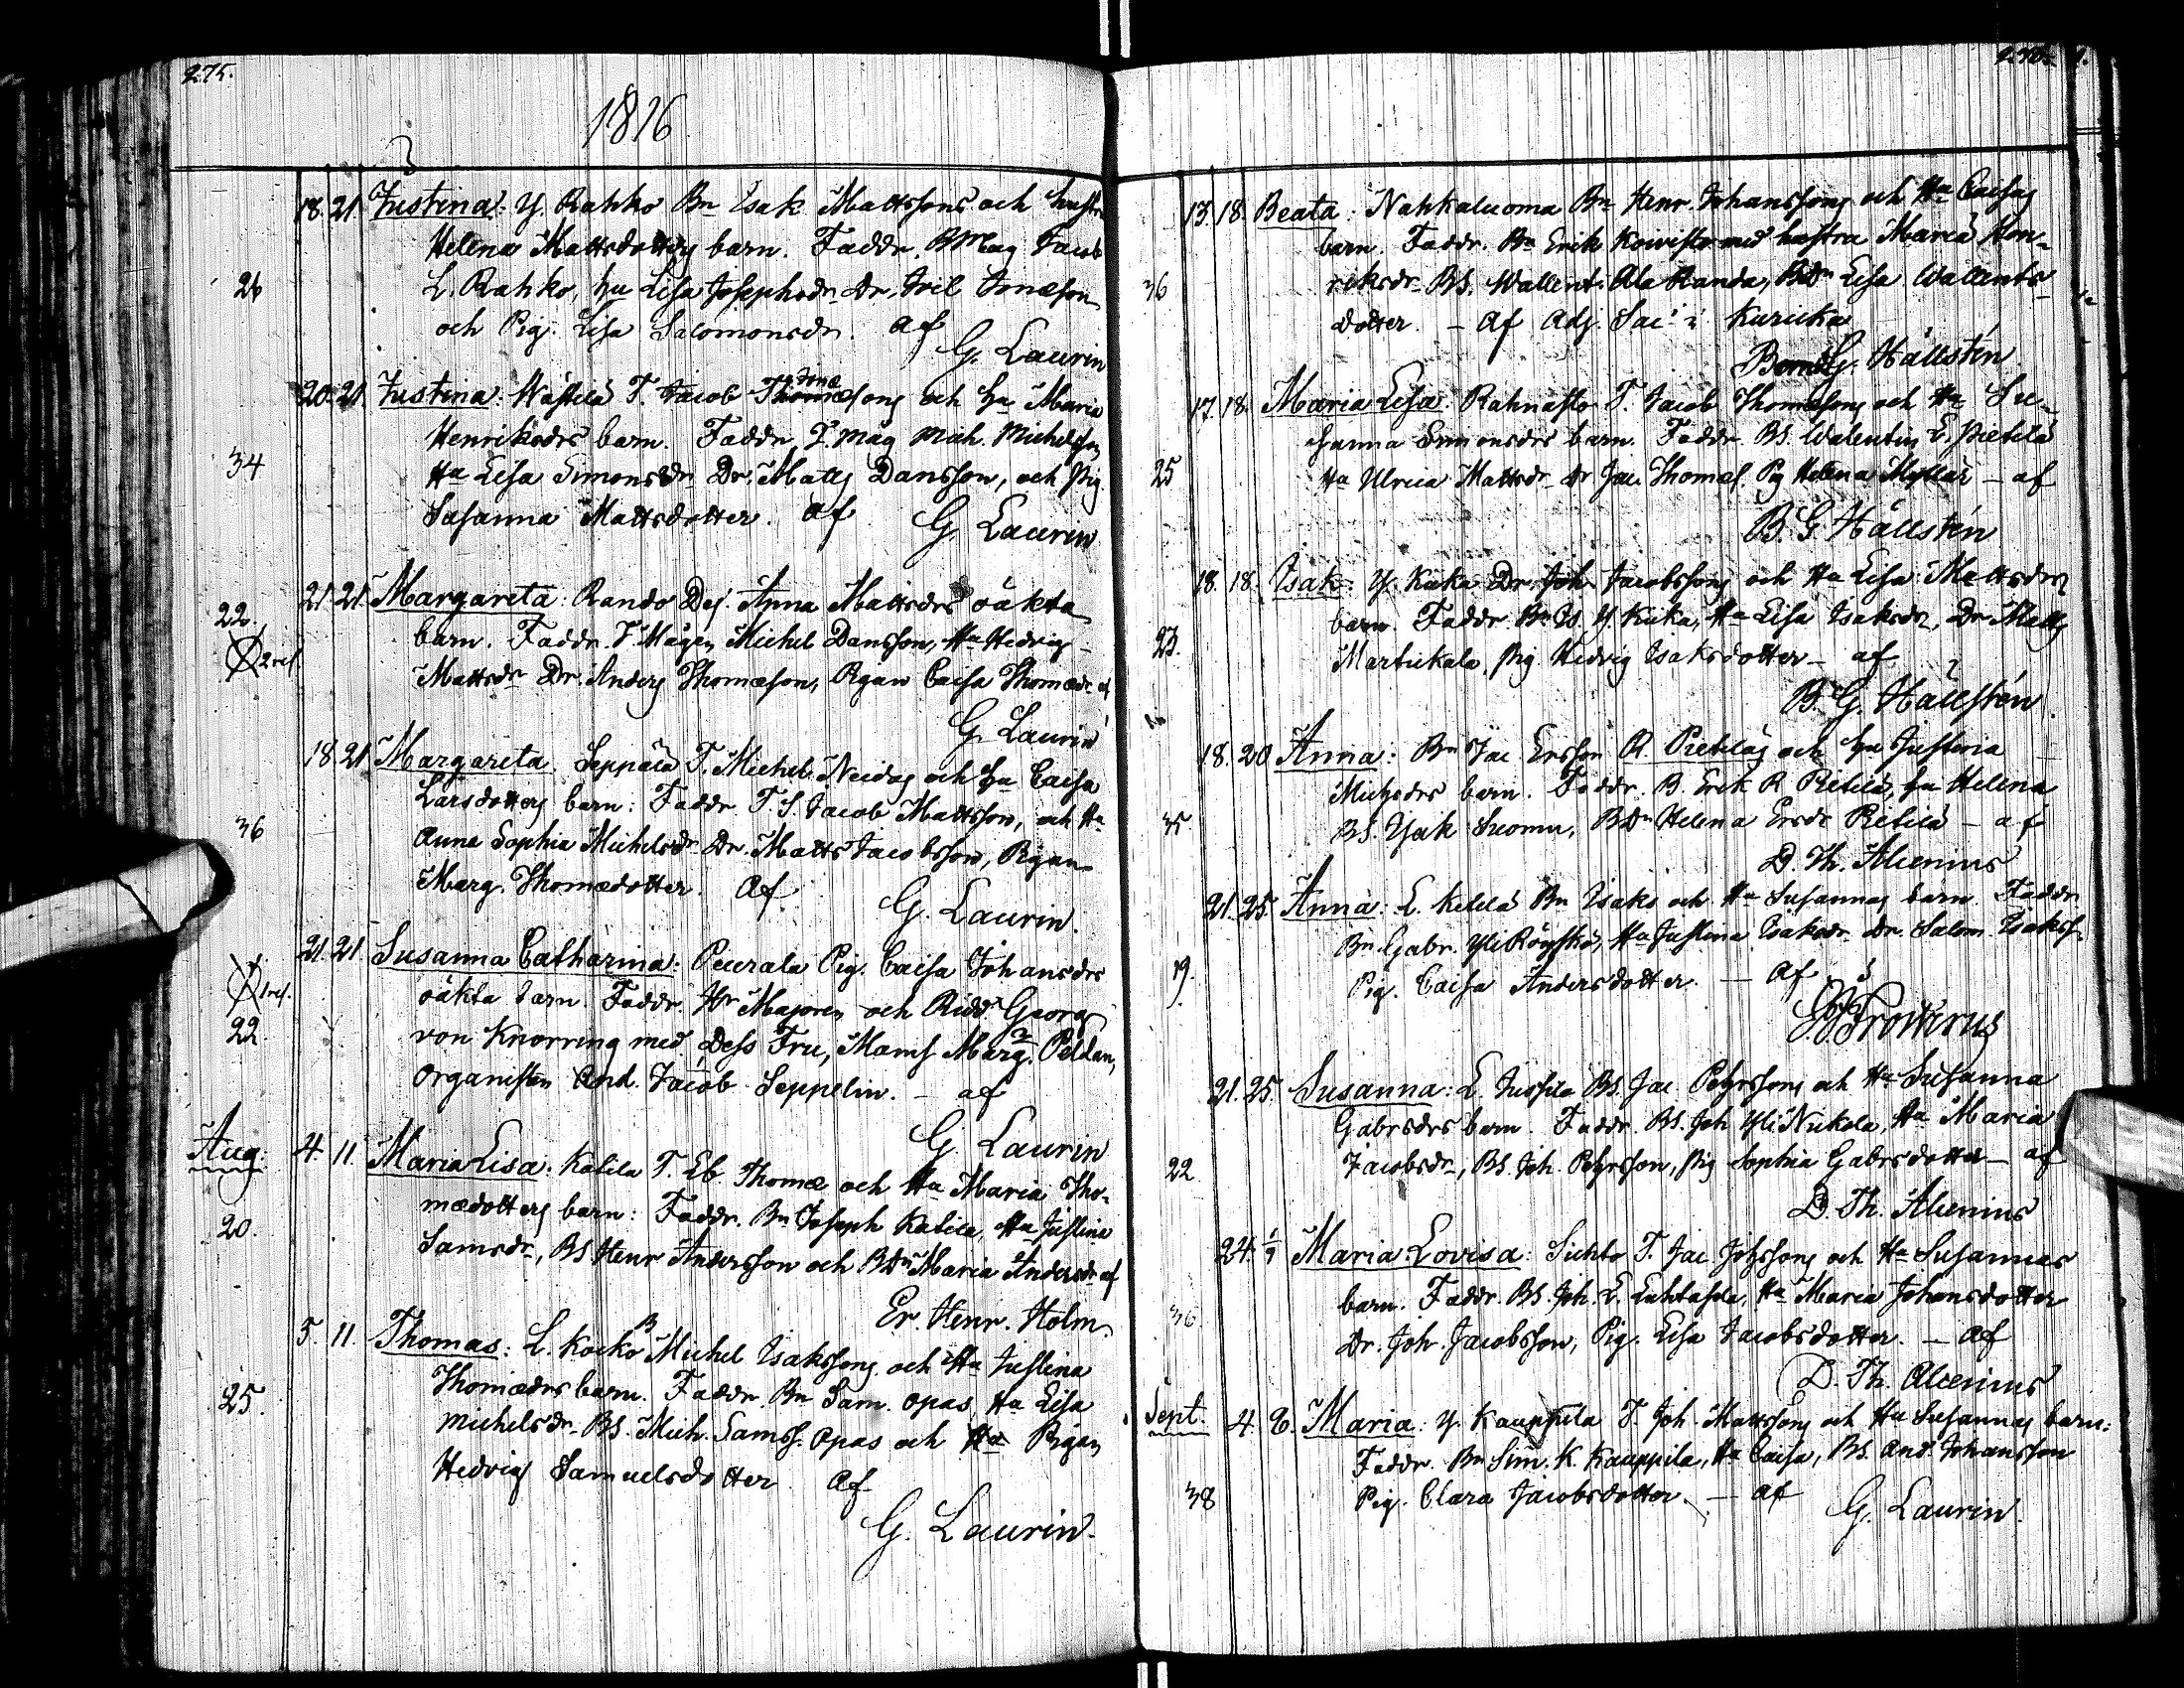 275.
1816
18. 21 Justina: Y. Rahko Bn Isak Mattssons och hustr
Helena Mattsdotters barn. Faddr. BMag Jacob
26 L. Rahko, hu Lisa Josephsdr Dr.
och Pig. Lisa Salomonsdr. af
G. Laurin
20. 21 Justina: T. Jacob Thomæsons och Hu Maria
Henriksdrs barn. Faddr. T. mag Mich. Michelsson
34 Ha Lisa Simonsdr Dr. Matts Dansson, och Pig
Susanna Mattsdotter. af
G. Laurin
21 21 Margareta: Rando Dej. Anna Mattsdrs oäkta
22. barn. Faddr. T. Mågen Michel Dansson, Ha Hedvig
2 ref. Mattsdr Dr. Anders Thomæson, Pigan Caisa Thomædr af
G. Laurin
18. 21 Margareta. Seppälä T. Michel Neidas och Hu Caisa
Larsdotters barn: Faddr. T. S. Jacob Mattsson, och Ha
36 Anna Sophia Michelsdr Dr. Matts Jacobsson, Pigan
Marg. Thomædotter. Af
G. Laurin.
21. 21 Susanna Catharina: Peurala Pig. Caisa Johansdrs
1 ref. oäkta barn. Faddr. Hr Majoren och Ridd. Georg
22 von Knorring med Dess Fru, Mams. Marg. Peldan,
Organisten And. Jacob Seppelin. – af
G. Laurin
Aug. 4 11. Maria Lisa: Katila T. Eb. Thomæ och Ha Maria Tho-
mædotters barn: Faddr. Bn Joseph Katila, Ha Justina
20. Samsdr, BS Henr Andersson och BDn Maria Andersdr af
Er. Henr. Holm.
5. 11. Thomas: L. Kocko B Michel Isakssons och Ha Justina
Thomædrs barn. Faddr. Bn Sam. Opas, Ha Lisa
25. Michelsdr. BS. Mich. Samss. Opas och Pigan
Hedvig Samuelsdotter af
G. Laurin.
13. 18. Beata: Nahkaluoma Bn Henr. Johanssons och Ha Caisas
barn. Faddr. Bn Erik Koivisto med hustru Maria Hen-
36 riksdr. BS. Wallent. Ala Randa, BDn Lisa Wallents-
dotter. – Af Adj. Sac. i Kuricka
G. Hällstén
17. 18. Maria Lisa: Rahnasto T. Jacob Thomæsons och Ha Su-
sanna Simonsdrs barn. Faddr. BS. Walentin L. Pietilä
25 Ha Ulrica Mattsdr. Dr Jac. Thomæs. Pig Helena Myllär – af
B. G. Hällstén
18. 18. Isak: Y. Kuka Dr. Joh. Jacobssons och Ha Lisa Mattsdrs
23. barn. Faddr. Bn Is. Y. Kuka, Ha Lisa Isaksdr, Dr Matts
Martickala, Pig Hedvig Isaksdotter – af
B. G. Hällstén.
18. 20 Anna: Bn Jac Ersson R. Pietiläs och hu Justina
Michsdrs barn. Faddr. B. Erik R Pietilä, hu Helena
35 BS. Isak Suomu, BDn Helena Ersdr Pietilä – af
D. Th. Alcenius
21. 25. Anna: L. Killä Bn Isaks och Ha Susannas barn. Faddr
Bn Gabr. Yli Röyskö, Ha Justina Isaksdr. Dr. Salom. Isakss.
19. Pig. Caisa Andersdotter. – Af
Frosterus
21. 25. Susanna: L. Jussila BS. Jac. Petersons och Ha Susanna
Gabrsdrs barn. Faddr. BS. Joh Yli Nukala, Ha Maria
22 Jacobsdr, BS. Joh. Petersson, Pig Sophia Gabrsdotter – af
D. Th. Alcenius
24. 1/9 Maria Lovisa: Sihto T. Jac Johssons och Ha Susannas
barn. Faddr. BS. Joh. L. Luhtasela, Ha Maria Johansdotter
36 Dr. Joh. Jacobsson, Pig. Lisa Jacobsdotter. – Af
D. Th. Alcenius
Sept. 4. 8. Maria: Y. Kauppila T. Joh. Mattssons och Ha Susannas barn:
Faddr. Bn Sim. K. Kauppila, Ha Caisa, BS. And. Johansson
38 Pig. Clara Jacobsdotter. – af
G. Laurin.